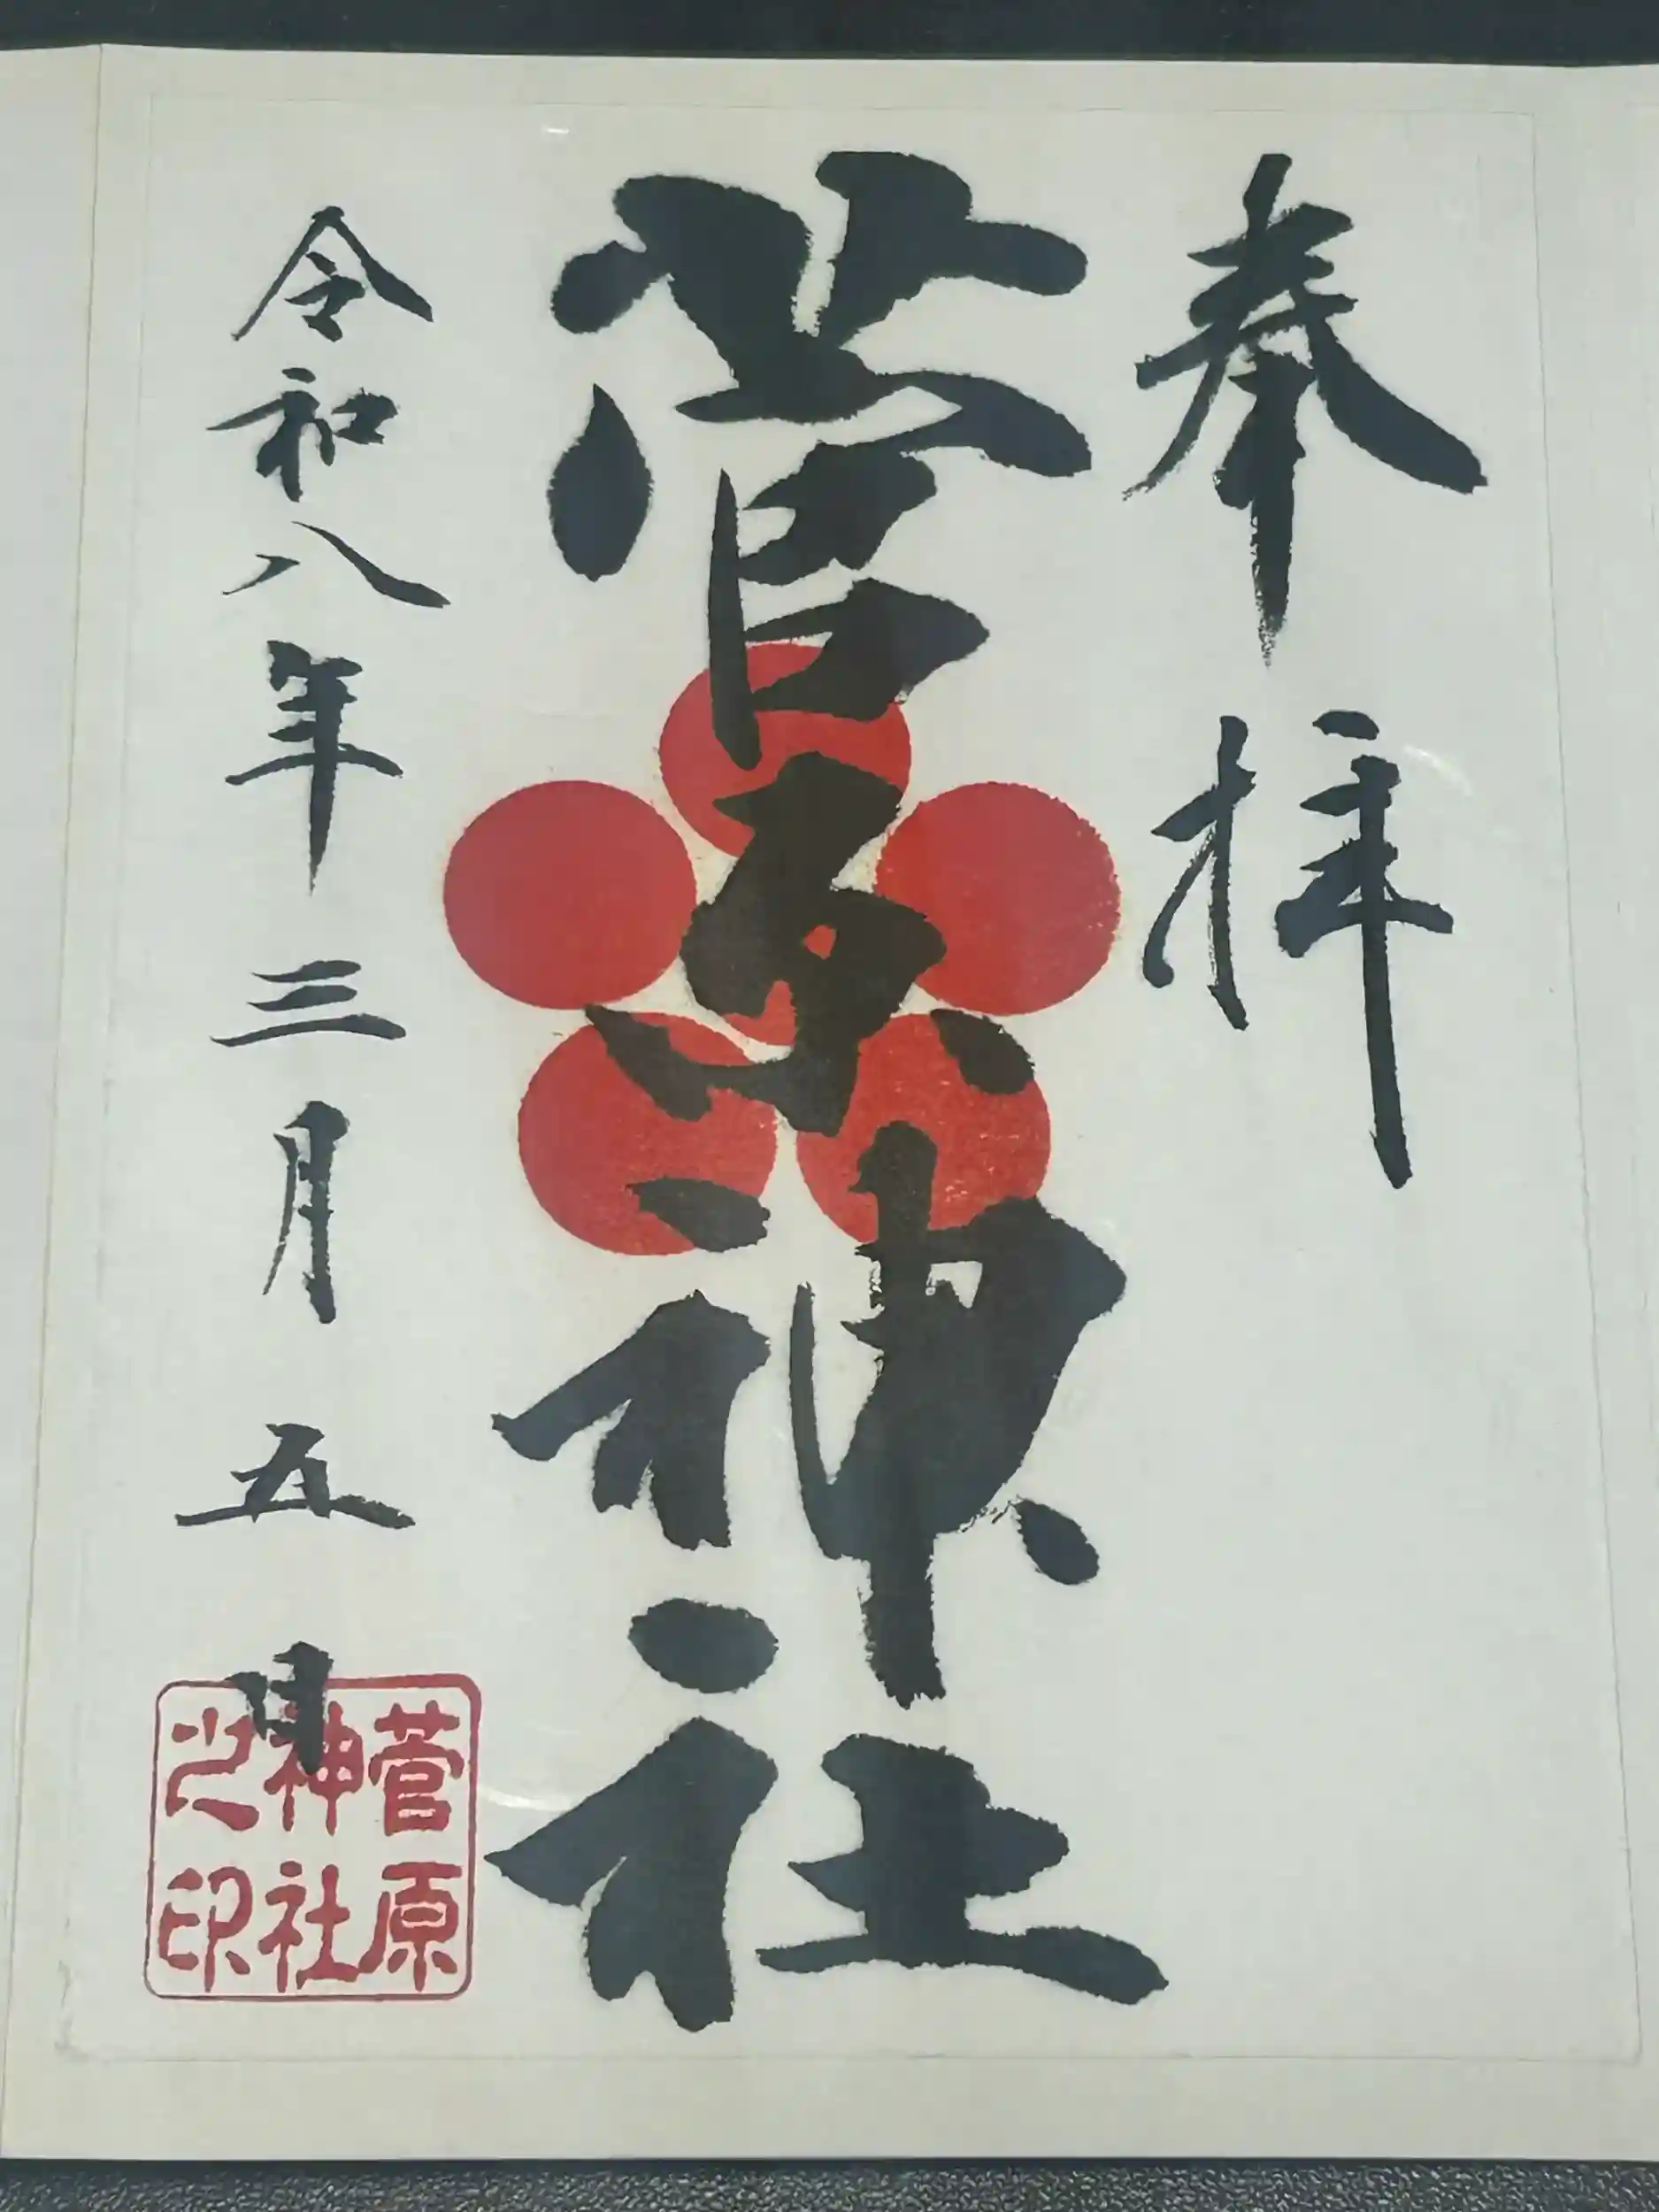 奉拝
菅原神社
令和八年三月五日
菅原
神社
之印